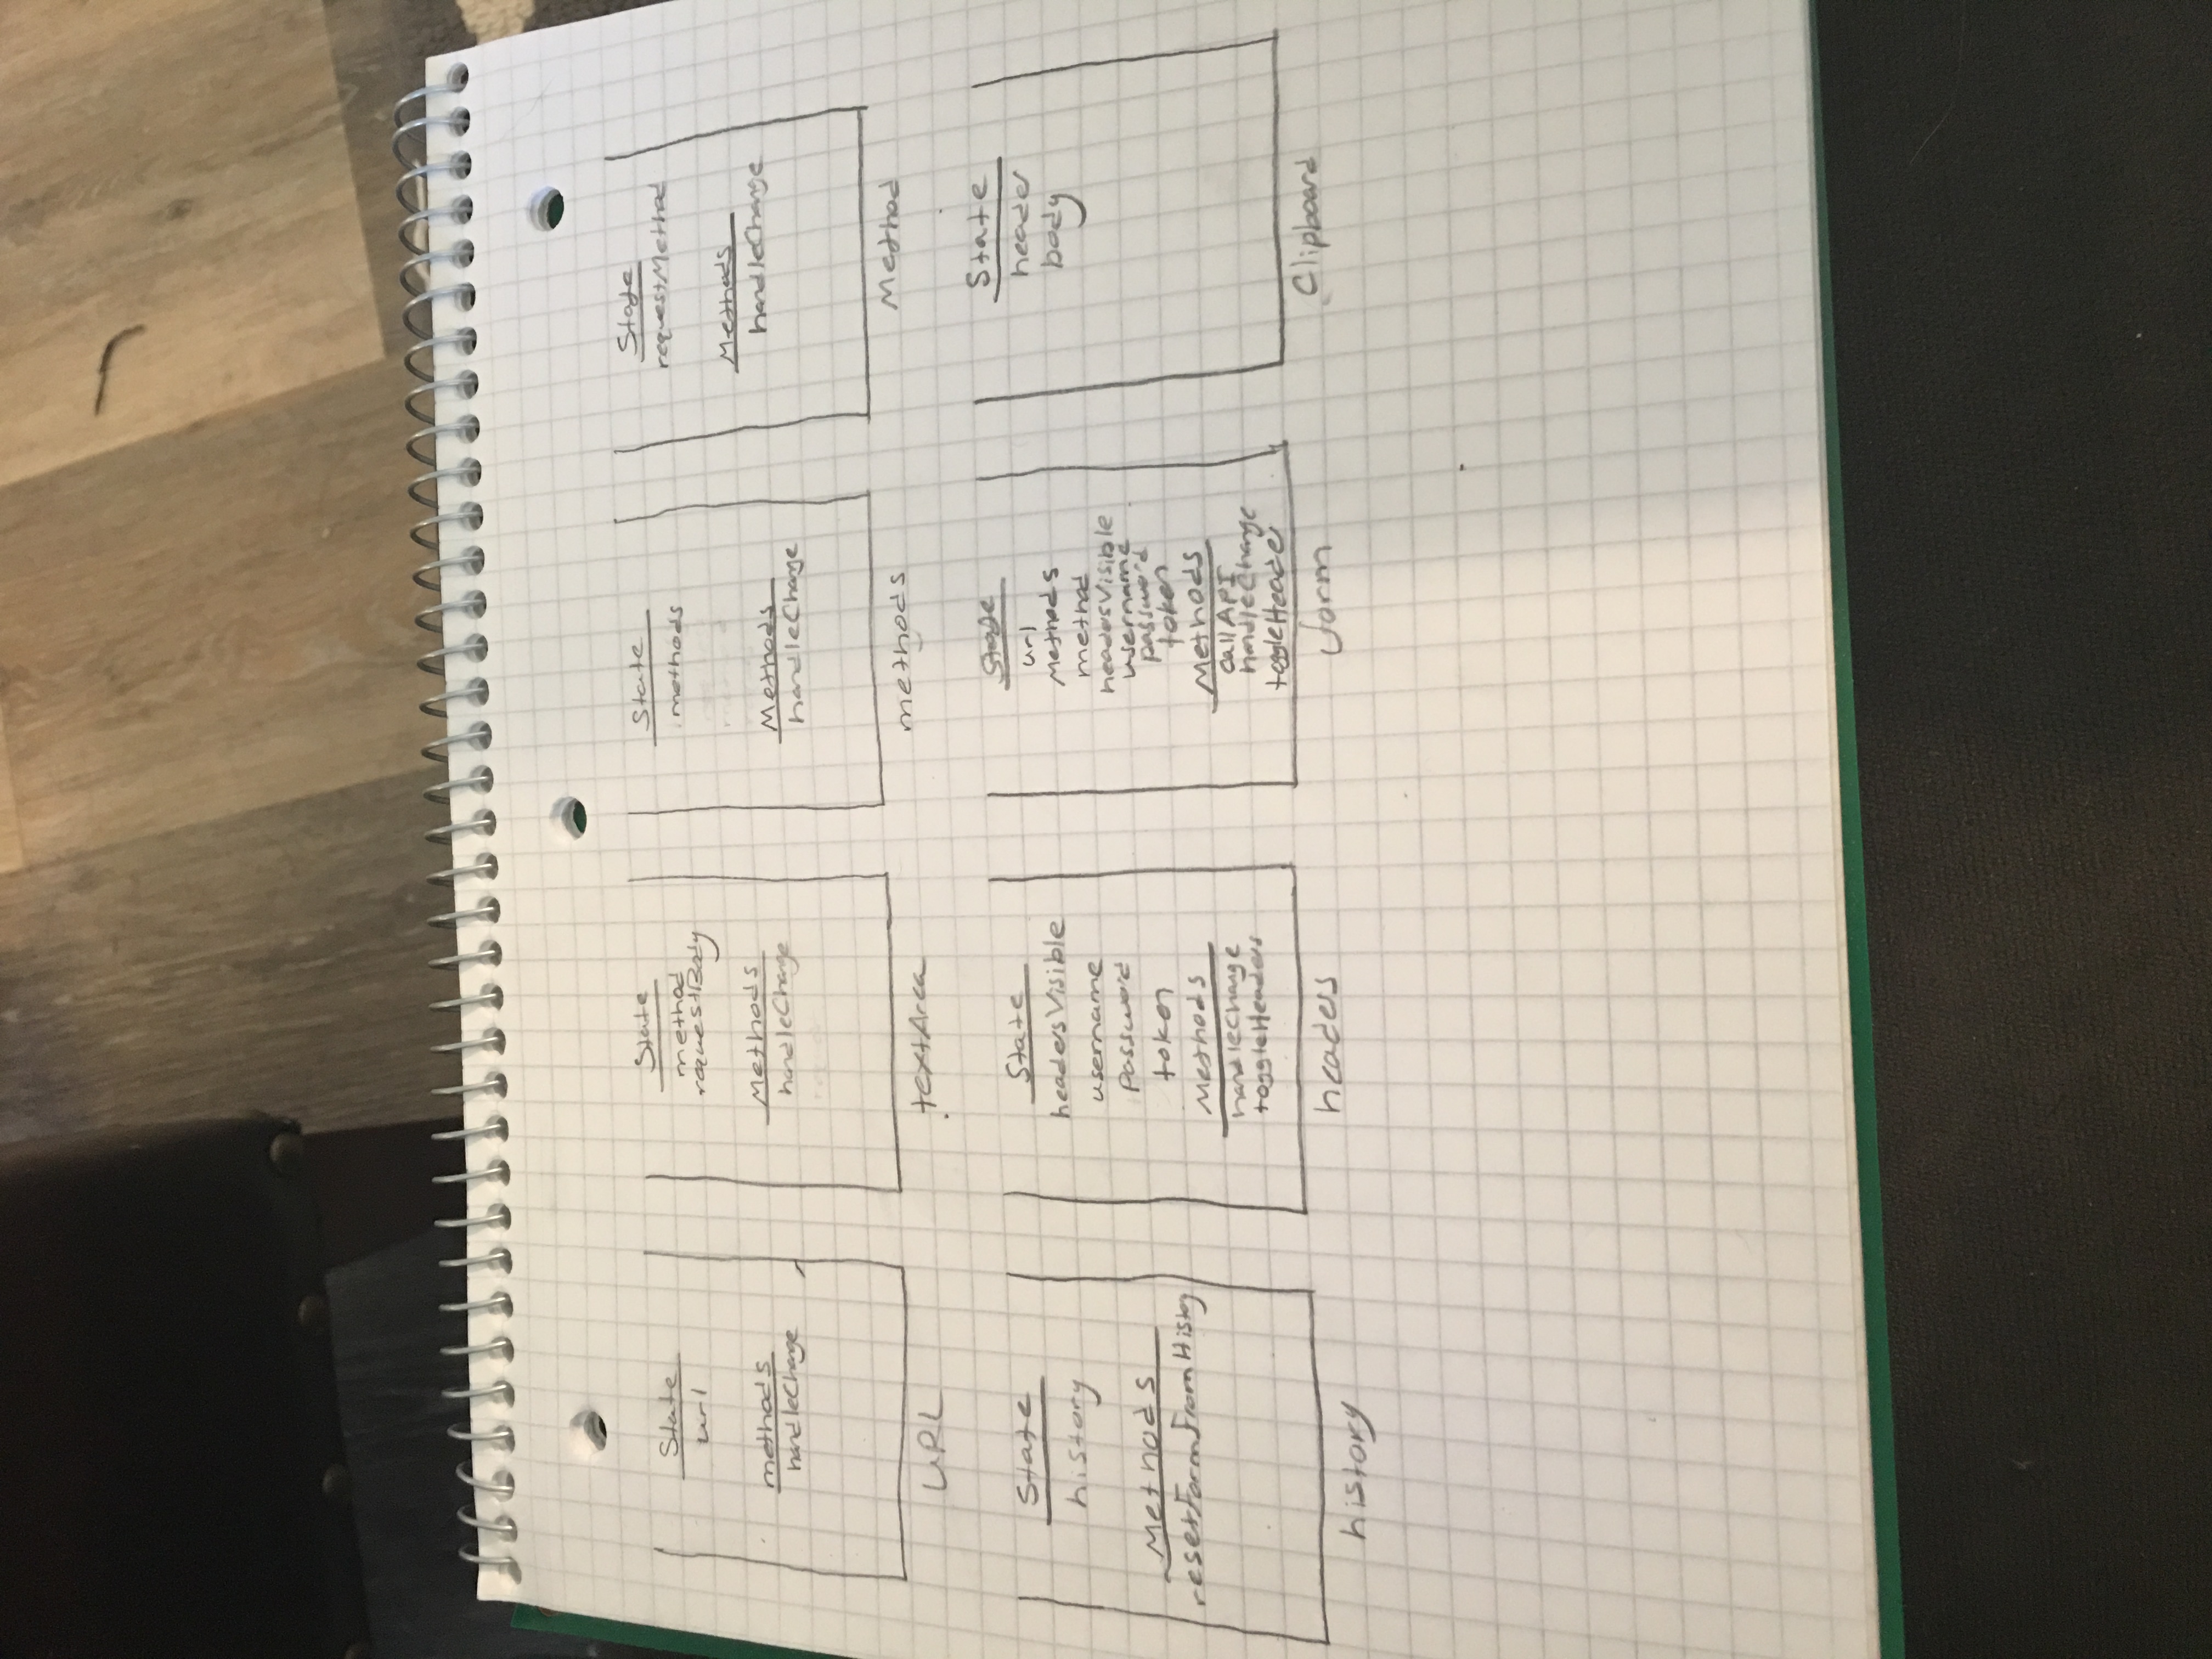 State
url
methods
handleChange
URL
State
method
requestBody
Methods
handleChange
textArea
State
methods
Methods
handleChange
methods
State
requestMethod
Methods
handleChange
Method
State
history
Methods
resetFormFromHistoy
history
State
headersVisible
username
password
token
Methods
handleChange
toggleHeaders
headers
State
url
Methods
method
headersVisible
username
password
token
Methods
callAPI
handleChange
toggleHeader
form
State
header
body
Clipboard